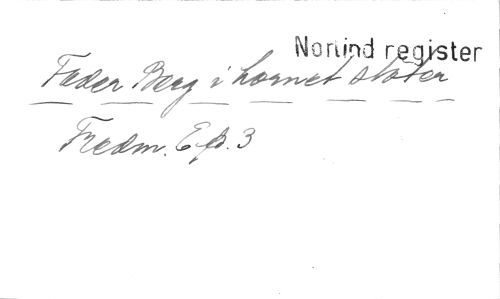 Norlind register
Fader Berg i hornet stöter
Fredm. Ep. 3